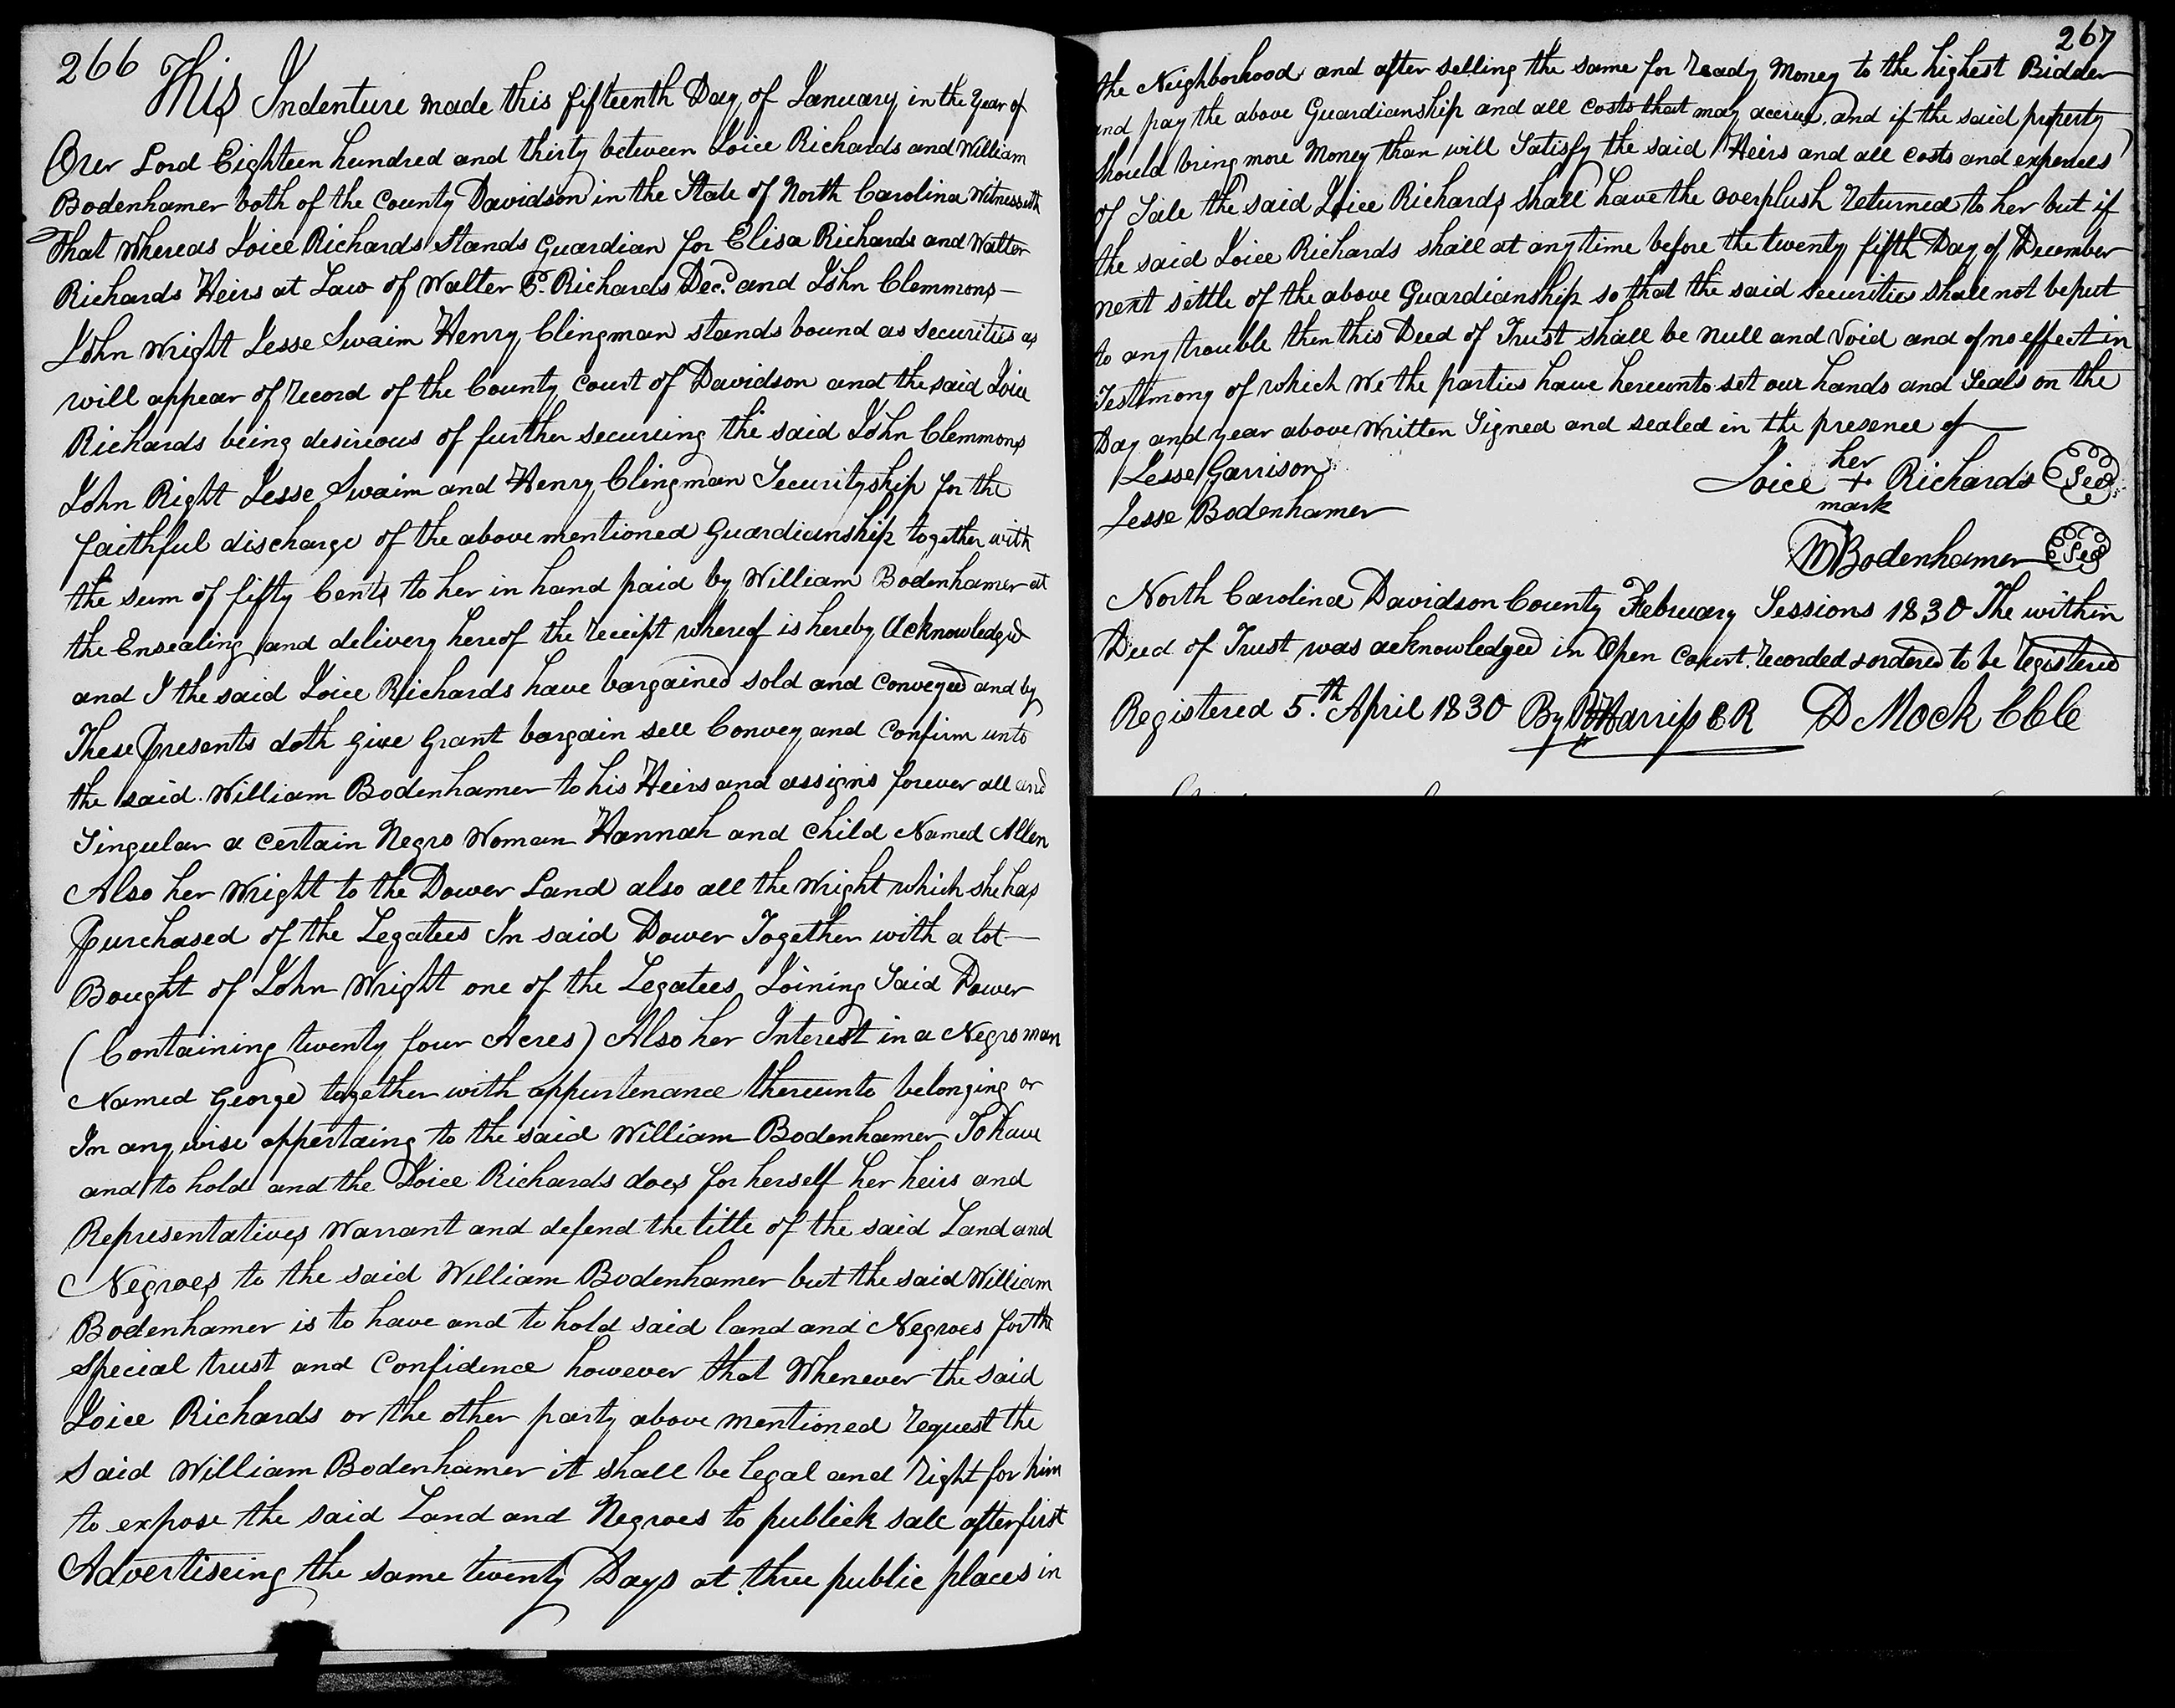 266
This Indenture made this fifteenth Day of January in the Year of
Our Lord Eighteen hundred and thirty between Loice Richards and William
Bodenhamer both of the County Davidson in the State of North Carolina Witnesseth
That Whereas Loice Richards Stands Guardian for Elisa Richards and Walter
Richards Heirs at Law of Walter P. Richards Decd. and John Clemmons
John Wright Jesse Swaim Henry Clingman stands bound as securities as
will appear of record of the County Court of Davidson and the said Loice
Richards being desireous of further secureing the said John Clemmons
John Right Jesse Swaim and Henry Clingman Securityship for the
faithful discharge of the above mentioned Guardianship together with
the sum of fifty Cents to her in hand paid by William Bodenhamer at
the Ensealing and delivery hereof the receipt whereof is hereby Acknowledged
and I the said Loice Richards have bargained sold and Conveyed and by
These Presents doth give Grant bargain sell Convey and Confirm unto
the said William Bodenhamer to his Heirs and assigns forever all and
Singular a Certain Negro Woman Hannah and Child Named Allen
Also her Wright to the Dower Land also all the Wright which she has
Purchased of the Legatees In said Dower Together with a lot
Bought of John Wright one of the Legatees Joining Said Dower
(Containing twenty four Acres) Also her Interest in a Negro man
Named George together with appurtenance thereunto belonging or
In any wise appertaing to the said William Bodenhamer To have
and to hold and the Loice Richards does for herself her heirs and
Representatives Warrant and defend the title of the said Land and
Negroes to the said William Bodenhamer but the said William
Bodenhamer is to have and to hold said land and Negroes for the
special trust and Confidence however that Whenever the said
Loice Richards or the other party above mentioned request the
said William Bodenhamer it shall be legal and right for him
to expose the said Land and Negroes to publick sale after first
Advertiseing the same twenty Days at three public places in
267
the Neighborhood and after selling the same for ready Money to the highest Bidder
and pay the above Guardianship and all Costs that may accrue and if the said property
should bring more Money than will Satisfy the said Heirs and all Costs and expences
of Sale the said Loice Richards shall have the overplush returned to her but if
the said Loice Richards shall at any time before the twenty fifth Day of December
next settle of the above Guardianship so that the said Securities shall not be put
to any trouble then this Deed of Trust shall be null and Void and of no effect in
Testimony of which We the parties have hereunto set our hands and Seals on the
Day and year above Written Signed and sealed in the presence of
Jesse Garrison
Jesse Bodenhamer
her
Loice + Richards Seal
mark
Wm Bodenhamer Seal
North Carolina Davidson County February Sessions 1830 The within
Deed of Trust was acknowledged in Open Court recorded & ordered to be registered
Registered 5.th April 1830 By Harriss P R D Mock CCC